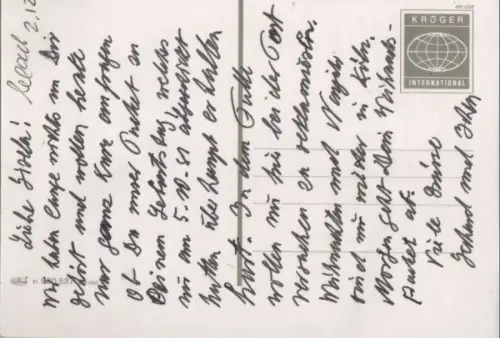 Liebe Gisela! 2.12
Wir haben lange nichts von Dir
gehört und wollen heute
nur ganz kurz anfragen
ob Du unser Packet zu
Deinem Geburtstag welches
wir am 5.10.81 abgeschickt
hatten überhaupt erhalten
hast. In dem Falle
wollen wir hier bei der Post
versuchen zu reklamieren.
Weihnachten und Neujahr
sind wir wieder in Köln.
Morgen geht Dein Weihnachts-
Packet ab.
Viele Grüsse
Gerhard und
KRÖGER
INTERNATIONAL